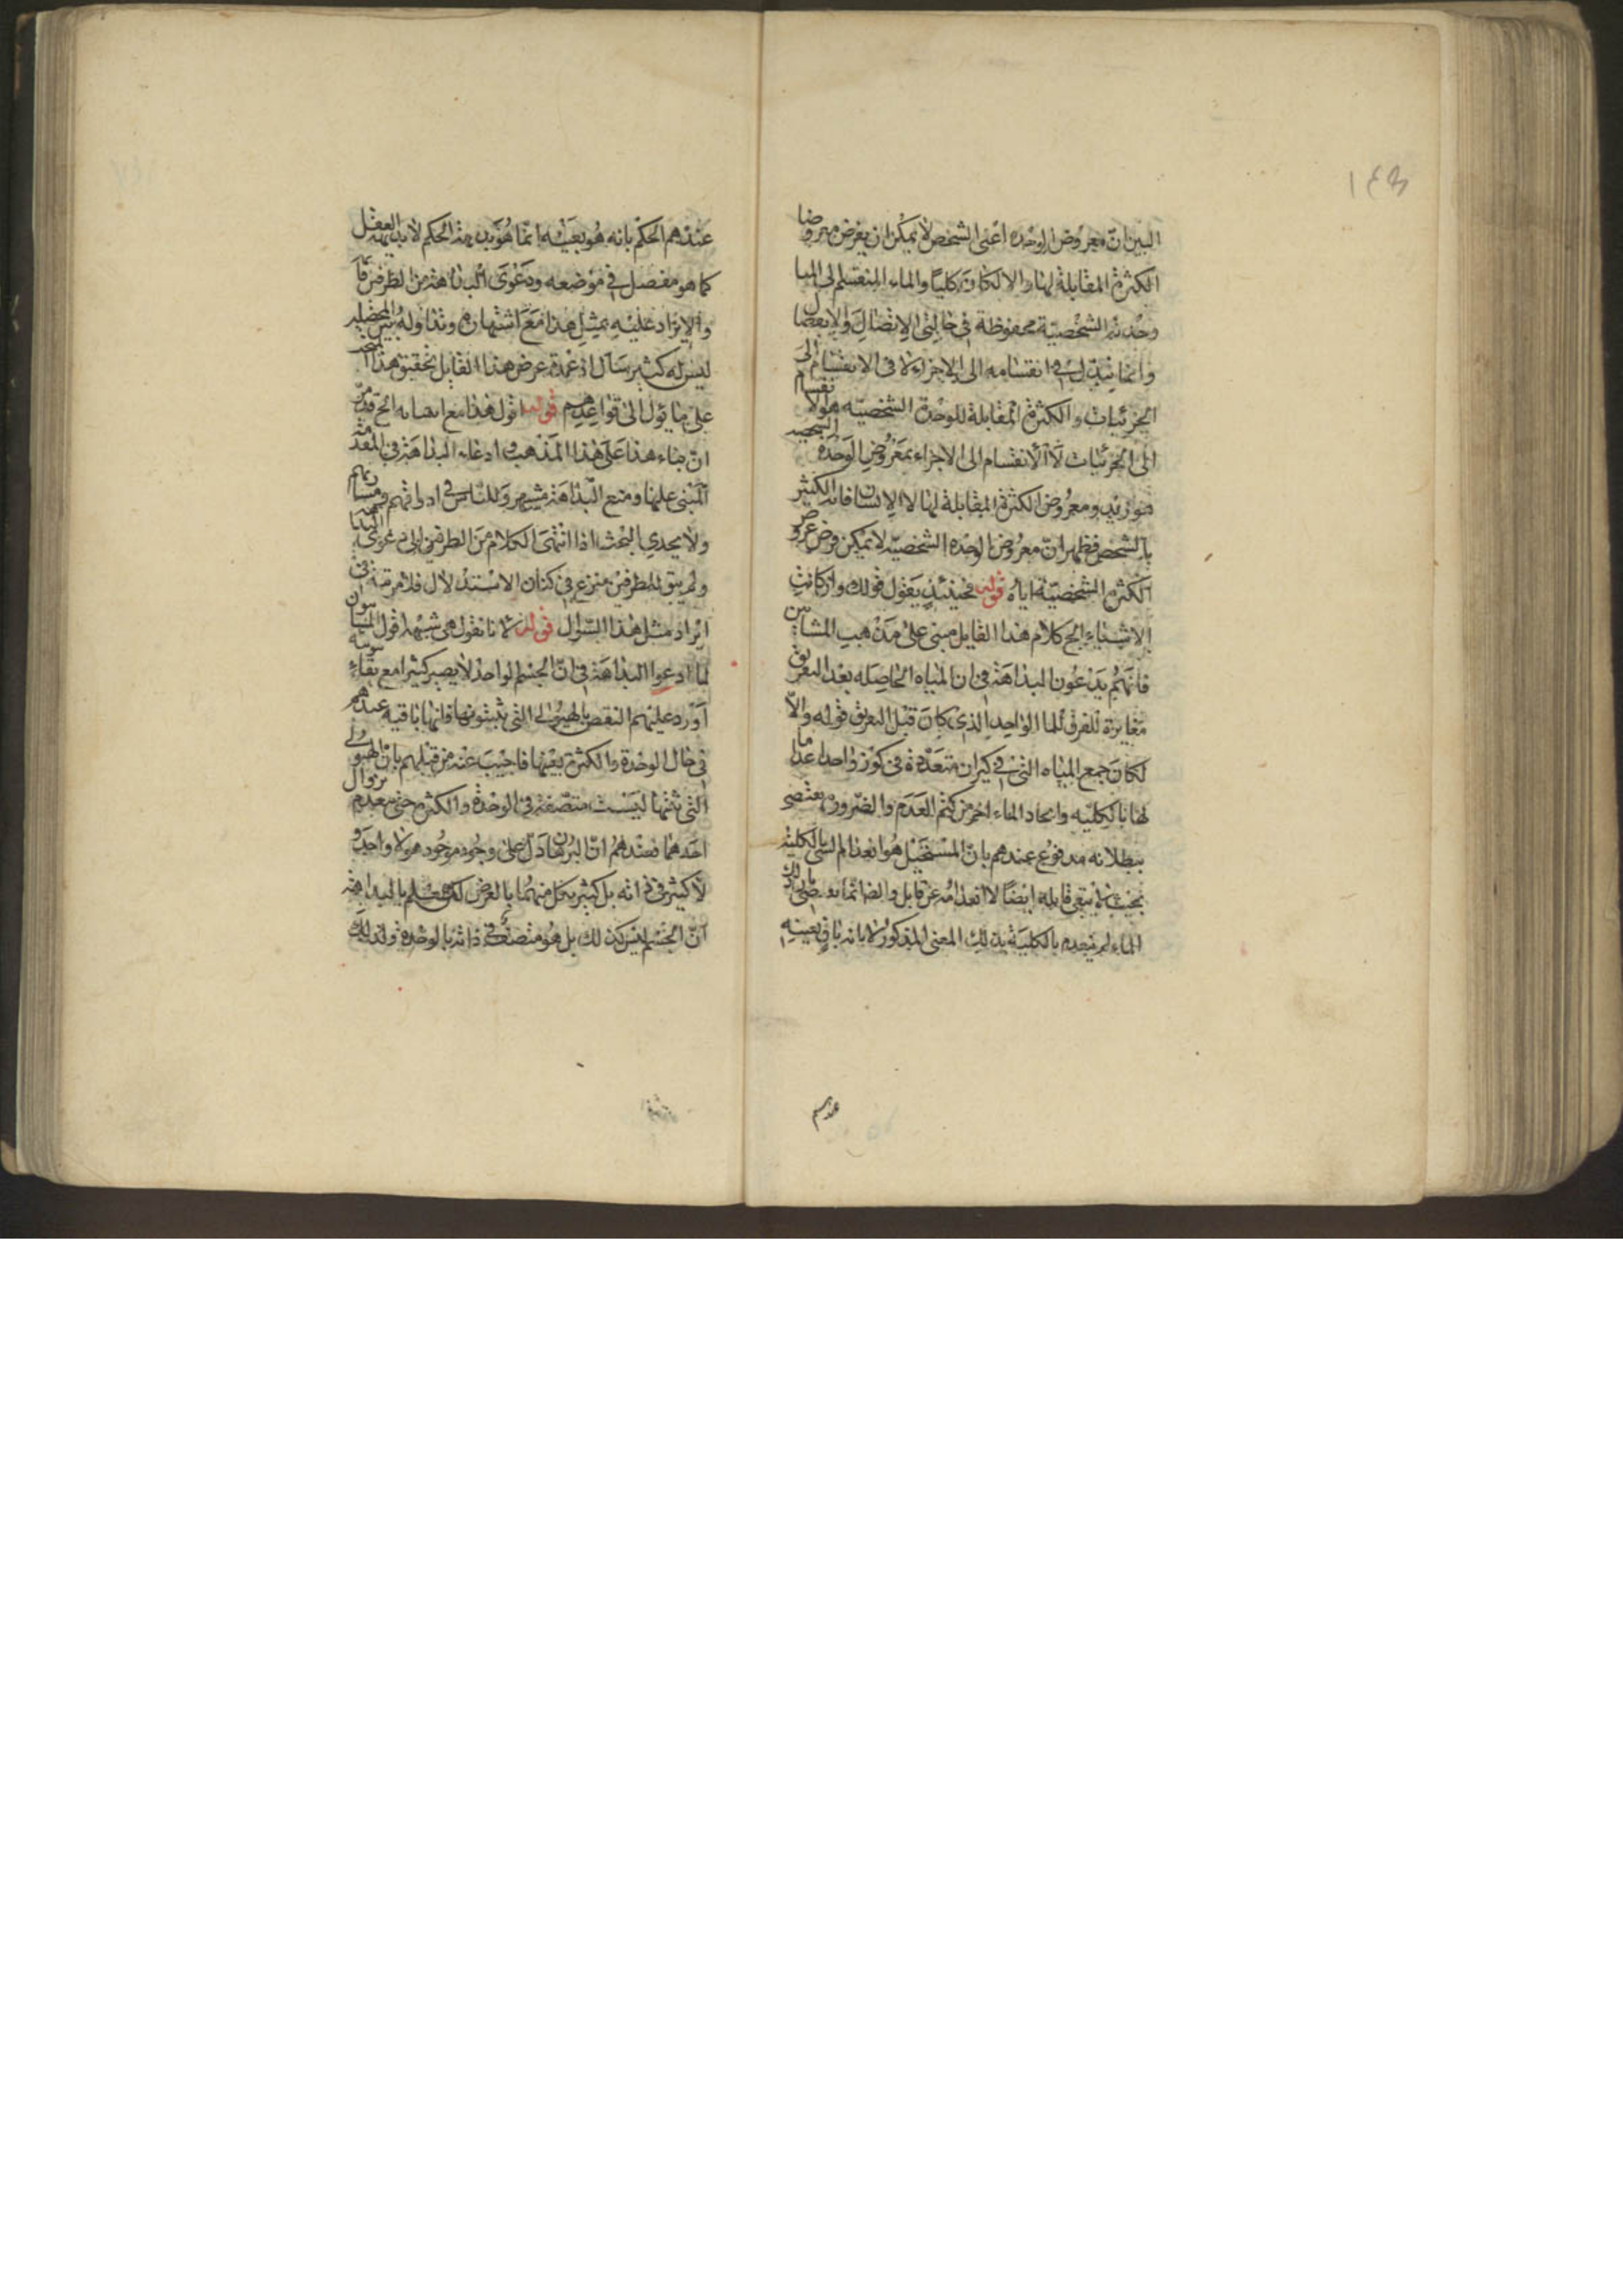 ١٤٣
البين ان معروض الوحدة اعنى الشخص لا يمكن ان يفرض معروضا
الكثرة المقابلة لها والا لكان كليا والماء المنقسم الى المياه
وحدته الشخصية محفوظة فى حالتى الاتصال والانفصال
وانما تبدل فى انقسامه الى الاجزاء لا فى الانقسام الى
الجزئيات والكثرة المقابلة للوحدة الشخصيه هو الانقسام
الى الجزئيات لا الانقسام الى الاجزاء بمعروض الوحدة
هو زيد ومعروض الكثرة المقابلة لها لا الانسان فانه الكثير
بالشخص فظهر ان معروض الوحده الشخصيه لا يمكن فرض عروض
الكثرة الشخصية اياه قوله فحينئذ يقول قولك وان كانت
الاشياء الخ كلام هذا القايل مبنى على مذهب المشائين
فانهم يدعون البداهة فى ان المياه الحاصله بعد التفريق
مغايرة للماء الواحد الذى كان قبل التفريق قوله والا
لكان جمع المياه التى فى كيزان متعددة فى كوز واحد اعداما
لها بالكليه وايجاد الماء اخر من كتم العدم والضرورة تقتضى
ببطلانه مدفوع عندهم بان المستحيل هو انعدام الشى بالكلية
بحيث لا يبقى قابله ايضا لا انعدامه عن قابل
الماء لم ينعدم بالكلية بذلك المعنى المذكور لا بانه باق بعينه
عندهم
عندهم الحكم بانه هو بعينه انما هو بديهة الحكم لا بديهة العقل
كما هو مفصل فى موضعه ودعوى البداهة من الطرفين
والايراد عليه بمثل هذا مع اشتهاره وتداوله بين المحصلين
ليس له كثير اذ عمدة غرض هذا القايل تحقيق هذا
على ما يؤل الى قواعدهم قوله اقول هذا مع الخ قد
ان بناء هذا على هذا المذهب ادعاء البداهة فى المقدمة
المبنى عليها ومنع البداهة مشهور وللناس فى
ولا يجدى البحث اذا انتهى الكلام من الطرفين الى دعوى البداهة
ولم يبق للطرفين منزع فى كنان الاستدلال فلا مرتبة فى
ايراد مثل هذا السؤال قوله لانا نقول هى شبهة اقول المشاؤن
لما ادعوا البداهة فى ان الجسم الواحد لا يصير كثيرا مع بقاء
اورد عليهم النقض بالهيولى التى يثبتونها فانها باقيه عندهم
فى حال الوحدة والكثرة بعينها فاجيب عنه من قبلهم بان الهيولى
التى نثبتها ليست متصفة فى الوحدة والكثرة حتى ينعدم بزوال
احدهما فعندهم ان البرهان دل على وجود موجود هو لا واحد
لا كثير فى ذاته بل كثير بكل منهما بالعرض لكن نعلم بالبداهة
ان الجسم ليس كذلك بل هو متصف فى ذاته بالوحدة ولذلك